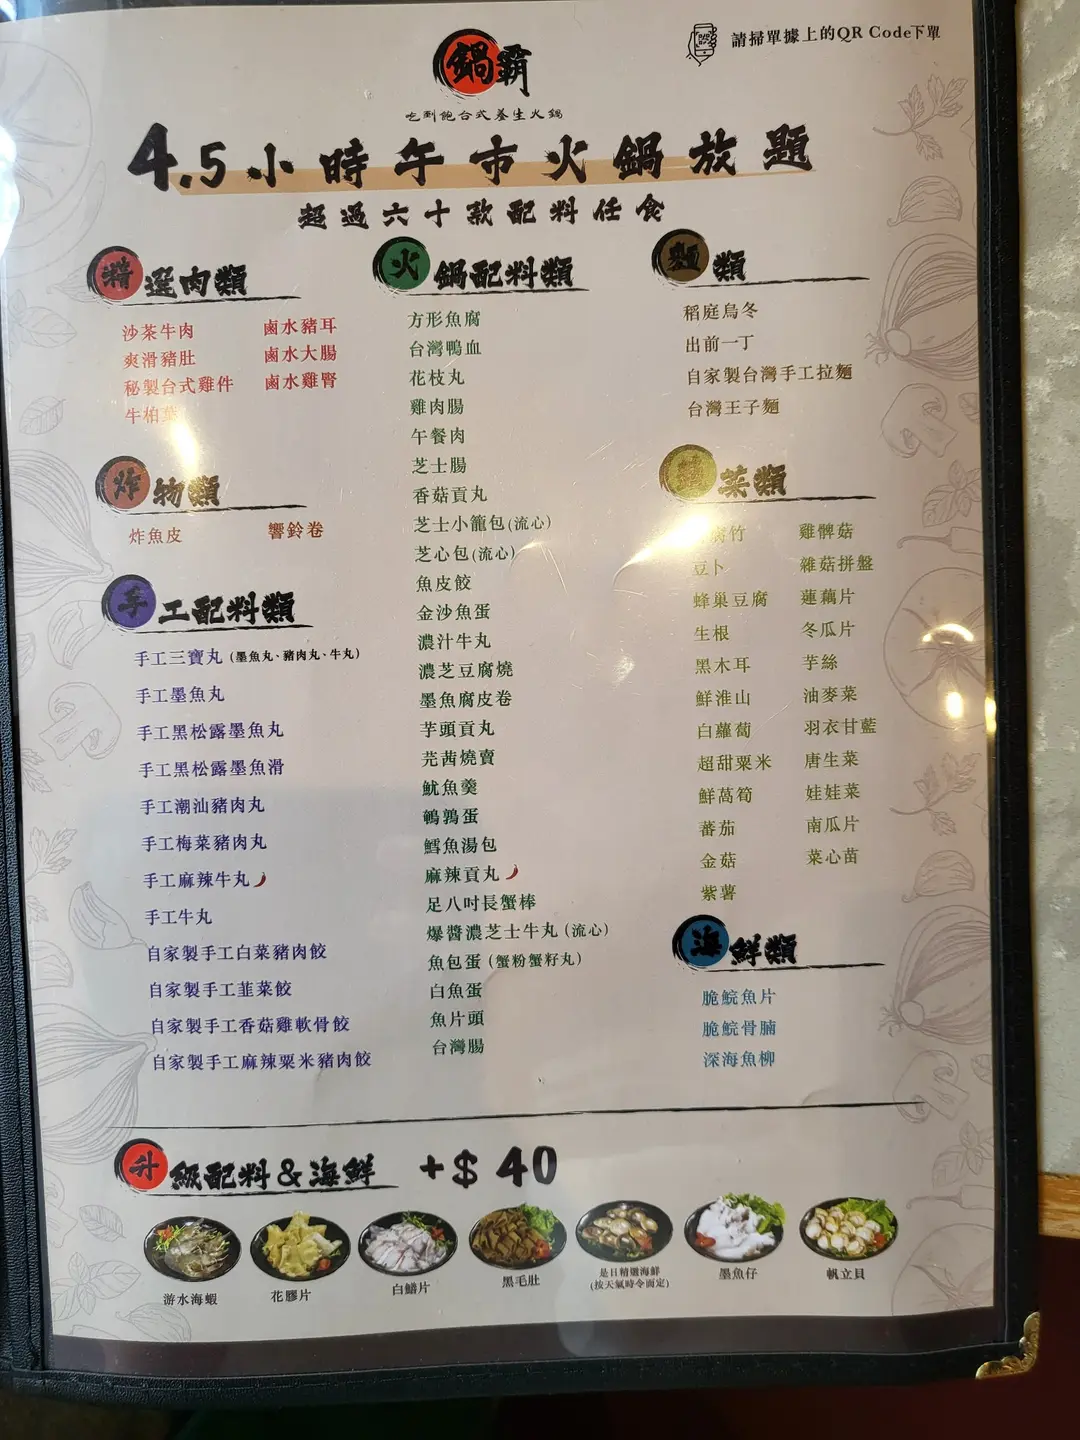 請掃單據上的QR Code下單
鍋霸
吃到飽台式養生火鍋
4.5小時午市火鍋放題
超過六十款配料任食
精選肉類
沙茶牛肉 鹵水豬耳
爽滑豬肚 鹵水大腸
秘製台式雞件 鹵水雞腎
牛柏葉
炸物類
炸魚皮 響鈴卷
手工配料類
手工三寶丸 (墨魚丸、豬肉丸、牛丸)
手工墨魚丸
手工黑松露墨魚丸
手工黑松露墨魚滑
手工潮汕豬肉丸
手工梅菜豬肉丸
手工麻辣牛丸
手工牛丸
自家製手工白菜豬肉餃
自家製手工韮菜餃
自家製手工香菇雞軟骨餃
自家製手工麻辣粟米豬肉餃
火鍋配料類
方形魚腐
台灣鴨血
花枝丸
雞肉腸
午餐肉
芝士腸
香菇貢丸
芝士小籠包(流心)
芝心包(流心)
魚皮餃
金沙魚蛋
濃汁牛丸
濃芝豆腐燒
墨魚腐皮卷
芋頭貢丸
芫茜燒賣
魷魚羹
鵪鶉蛋
鱈魚湯包
麻辣貢丸
足八吋長蟹棒
爆醬濃芝士牛丸 (流心)
魚包蛋 (蟹粉蟹籽丸)
白魚蛋
魚片頭
台灣腸
麵類
稻庭烏冬
出前一丁
自家製台灣手工拉麵
台灣王子麵
菜類
腐竹 雞髀菇
豆卜 雜菇拼盤
蜂巢豆腐 蓮藕片
生根 冬瓜片
黑木耳 芋絲
鮮淮山 油麥菜
白蘿蔔 羽衣甘藍
超甜粟米 唐生菜
鮮萵筍 娃娃菜
蕃茄 南瓜片
金菇 菜心苗
紫薯
海鮮類
脆鯇魚片
脆鯇骨腩
深海魚柳
升級配料&海鮮 +$40
游水海蝦
花膠片
白鱔片
黑毛肚
是日精選海鮮
(按天氣時令而定)
墨魚仔
帆立貝